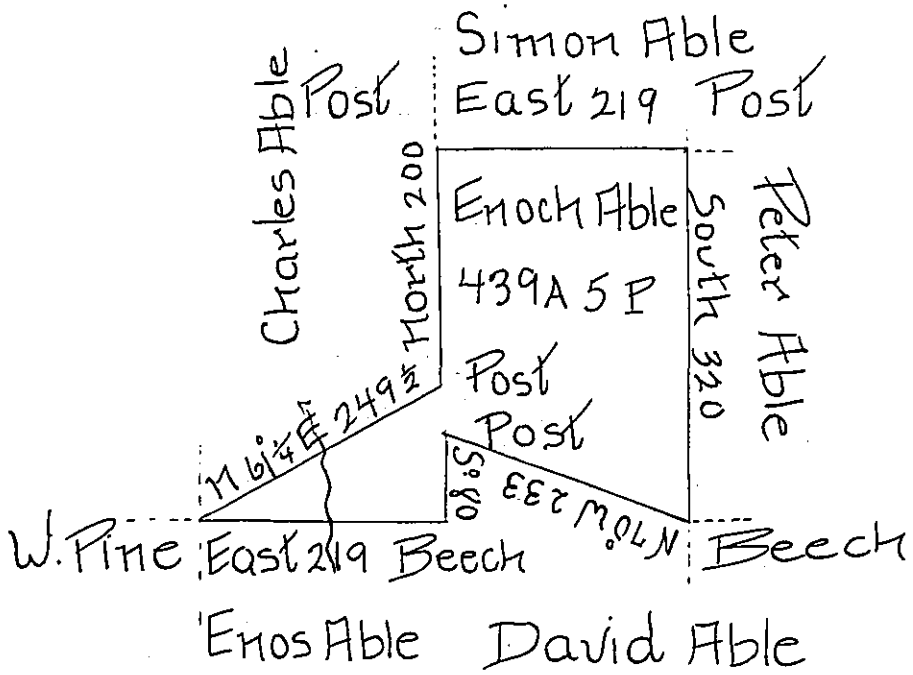 Simon Able
East 219
Post
Post
Charles Able
North 200
Enoch Able
439A 5P
South 320
Peter Able
Post
Post
N 61¼°E 249½
So. 80
N 70°W 233
W. Pine
East 219
Beech
Beech
Enos Able
David Able